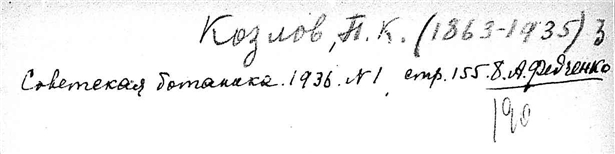 Козлов, П. К. (1863-1935) З
Советская ботаника. 1936. N 1, стр. 155. Б. А. Федченко
190